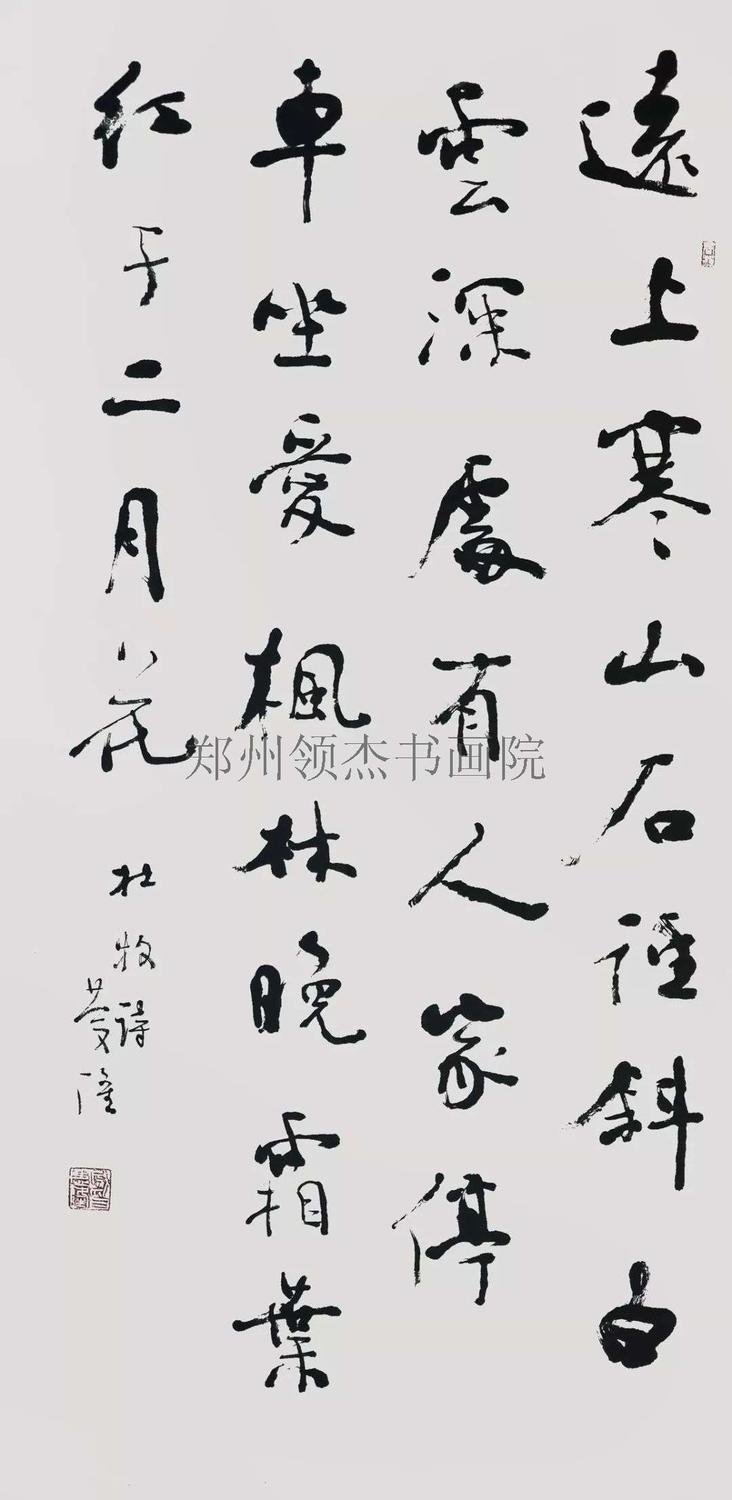 遠上寒山石徑斜白
雲深處有人家停
車坐愛楓林晚霜葉
红于二月花
杜牧詩
慶隆
郑州领杰书画院